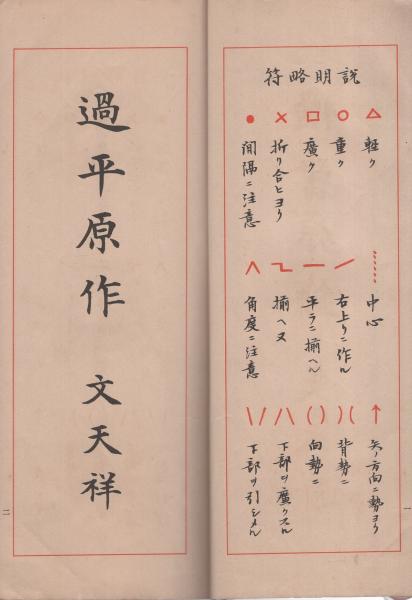 説明略符
軽ク
重ク
廣ク
折リ合ヒヨク
間隔ニ注意
中心
右上リニ作ル
平ラニ揃ヘル
揃ヘヌ
角度ニ注意
矢ノ方向ニ勢ヨク
背勢ニ
向勢ニ
下部ヲ廣クスル
下部ヲ引シメル
一
過平原作 文天祥
二